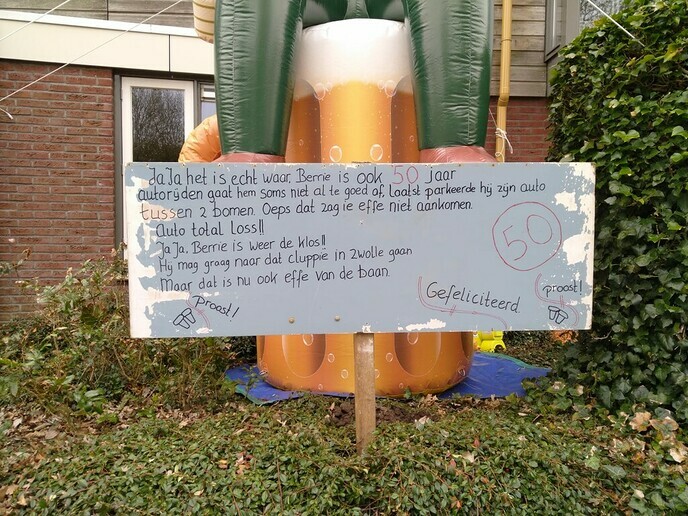 JaJa het is echt waar, Berrie is ook 50 jaar
autorijden gaat hem soms niet al te goed af, laatst parkeerde hij zijn auto
tussen 2 bomen. Oeps dat zag ie effe niet aankomen.
Auto total loss!!
JaJa. Berrie is weer de klos!!
Hij mag graag naar dat cluppie in Zwolle gaan
Maar dat is nu ook effe van de baan.
50
Gefeliciteerd.
proost!
proost!